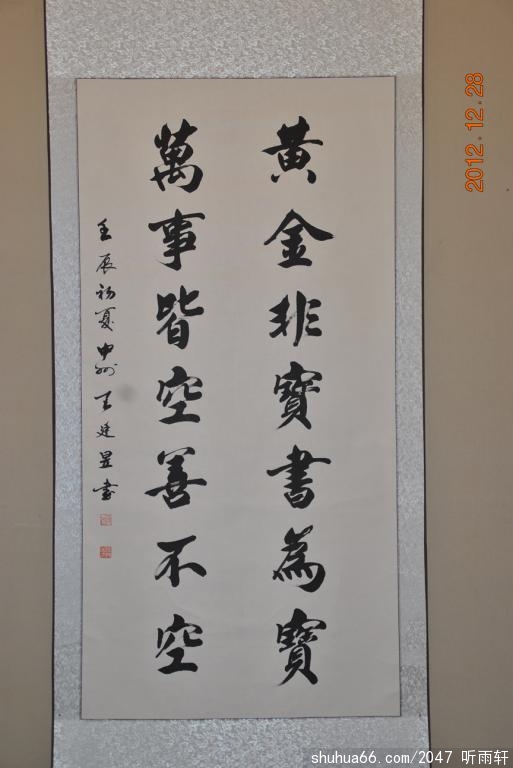 黄金非寶書為寶
萬事皆空善不空
壬辰初夏中州王廷昱書
2012.12.28
shuhua66.com/2047 听雨轩